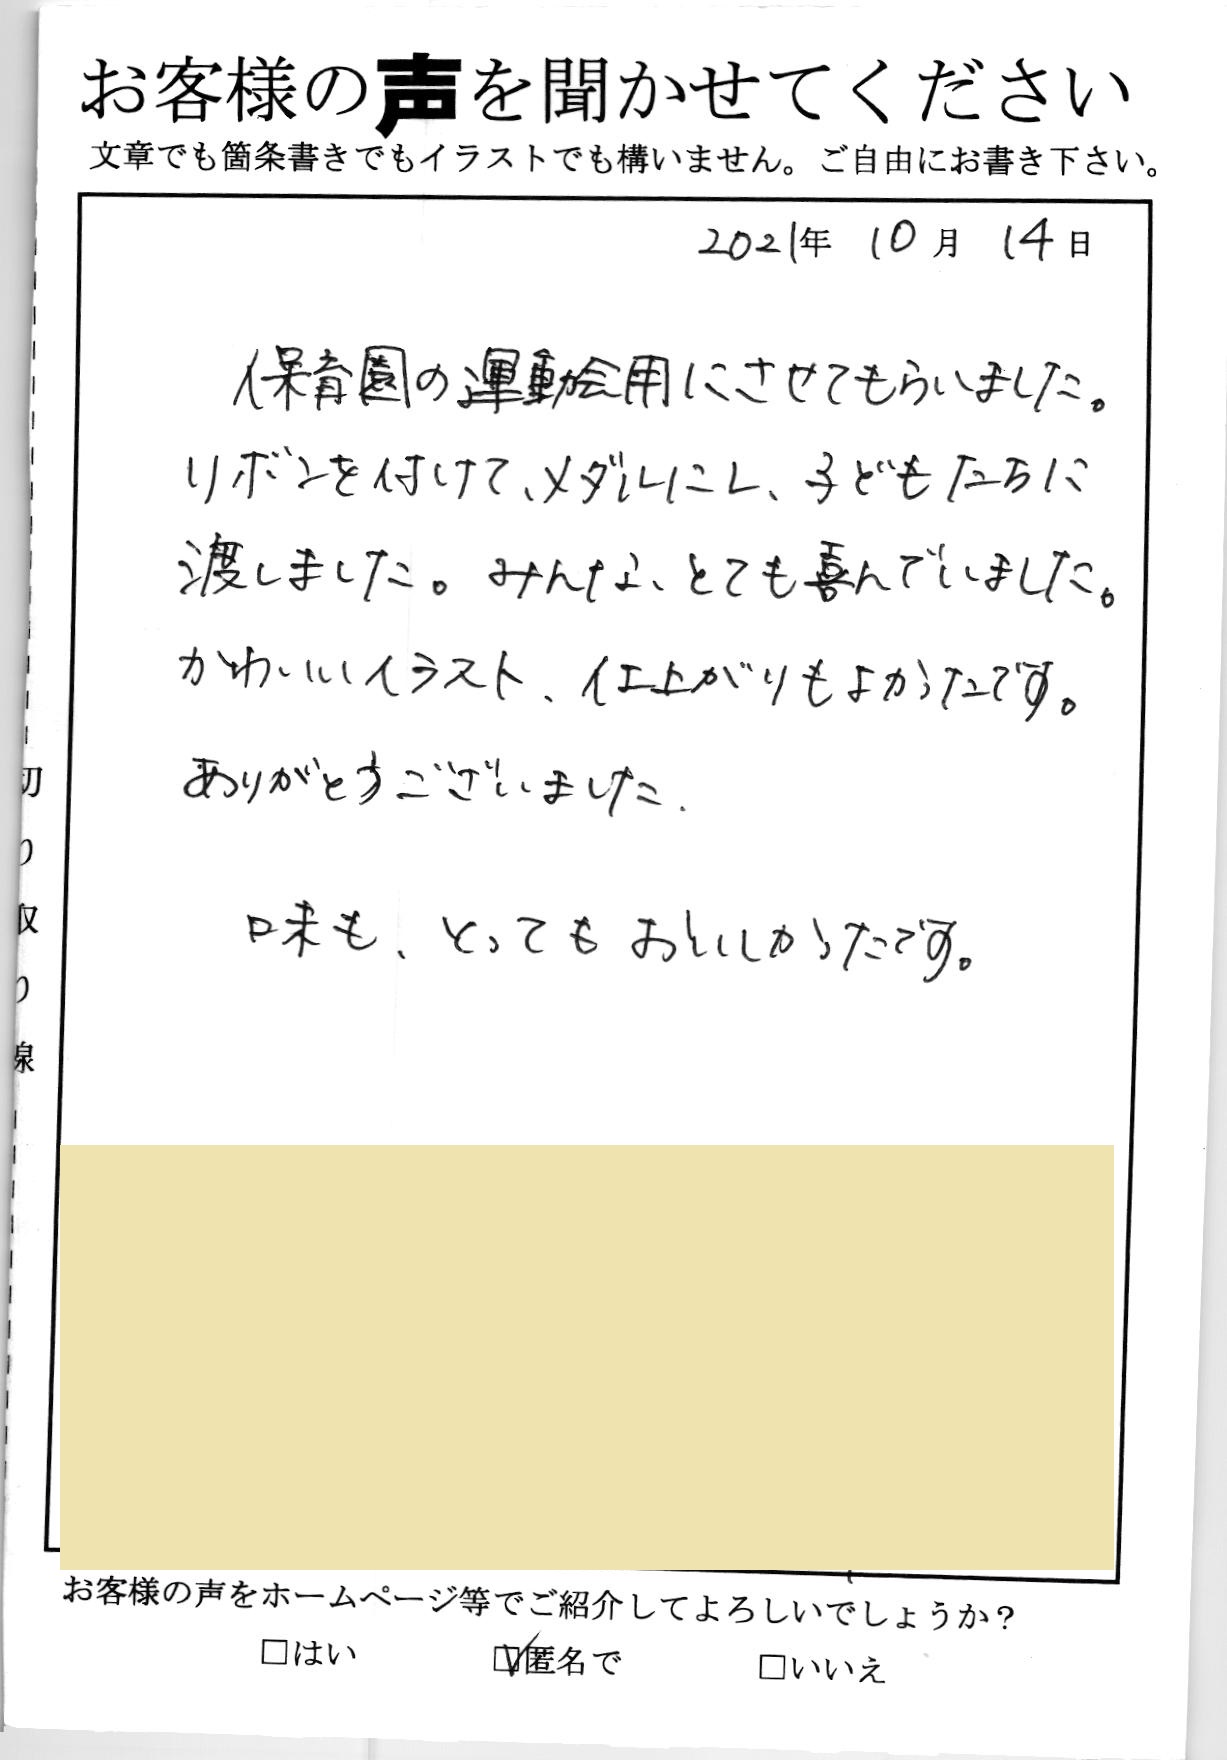 お客様の声を聞かせてください
文章でも箇条書きでもイラストでも構いません。ご自由にお書き下さい。
2021年 10月 14日
保育園の運動会用にさせてもらいました。
リボンを付けて、メダルにし、子どもたちに
渡しました。みんな、とても喜んでいました。
かわいいイラスト、仕上がりもよかったです。
ありがとうございました.
味も、とってもおいしかったです。
切り取り線
お客様の声をホームページ等でご紹介してよろしいでしょうか?
□はい ☑匿名で □いいえ